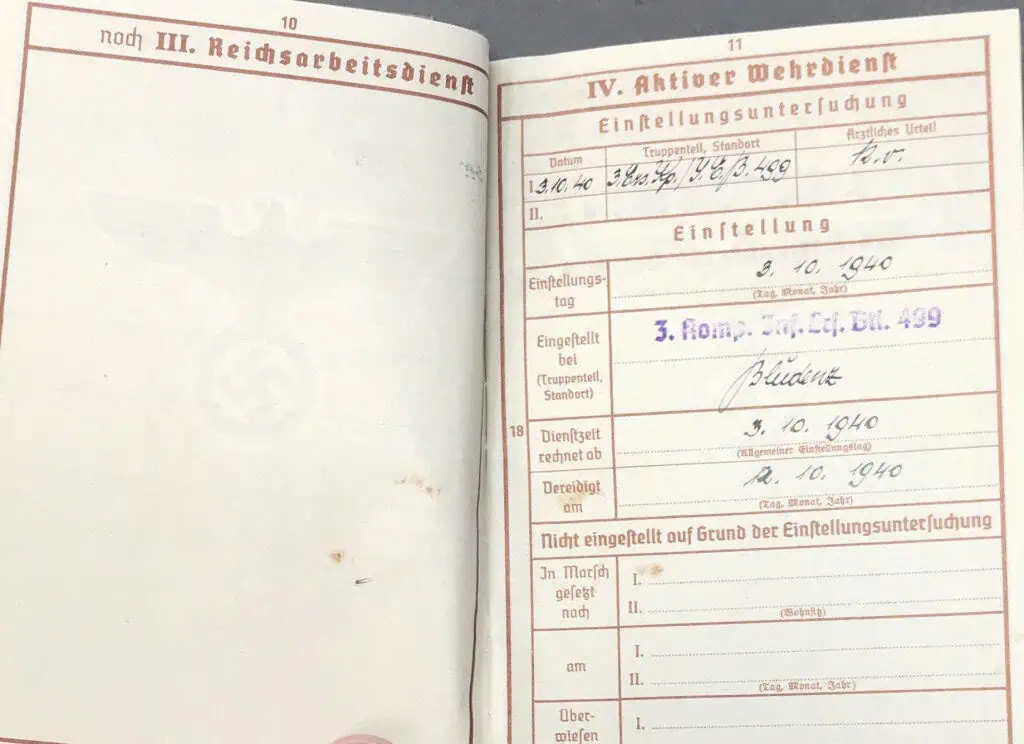 10
noch III. Reichsarbeitsdienst
11
IV. Aktiver Wehrdienst
Einstellungsuntersuchung
Datum
Truppenteil, Standort
Ärztliches Urteil
I 3.10.40
3. Ers. Kp./I.E.B. 499
k.v.
II.
Einstellung
Einstellungs-
tag
3. 10. 1940
(Tag, Monat, Jahr)
Eingestellt
bei
(Truppenteil,
Standort)
3. Komp. Inf. Ers. Btl. 499
Bludenz
18
Dienstzeit
rechnet ab
3. 10. 1940
(Allgemeiner Einstellungstag)
Vereidigt
am
10. 1940
(Tag, Monat, Jahr)
Nicht eingestellt auf Grund der Einstellungsuntersuchung
In Marsch
gesetzt
nach
I.
II.
(Wohnsitz)
am
I.
II.
(Tag, Monat, Jahr)
Über-
wiesen
I.